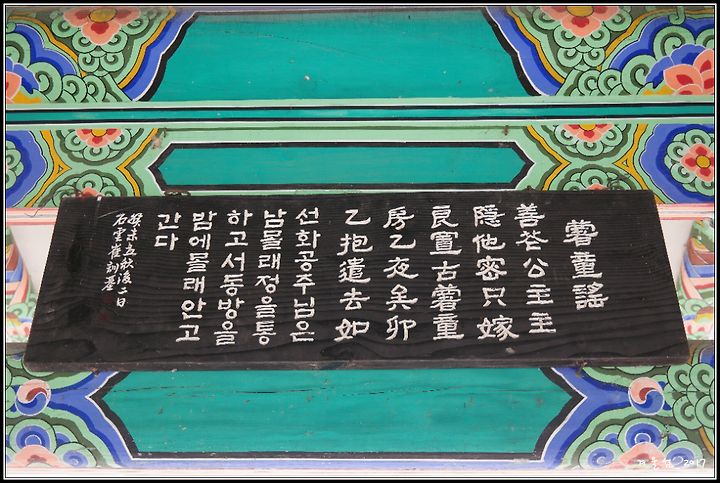 薯童謠
善花公主主
隱他密只嫁
良置古薯童
房乙夜矣卯
乙抱遣去如
선화공주님은
남몰래정을통
하고서동방을
밤에몰래안고
간다
癸未立秋後二日
石雲崔
2017